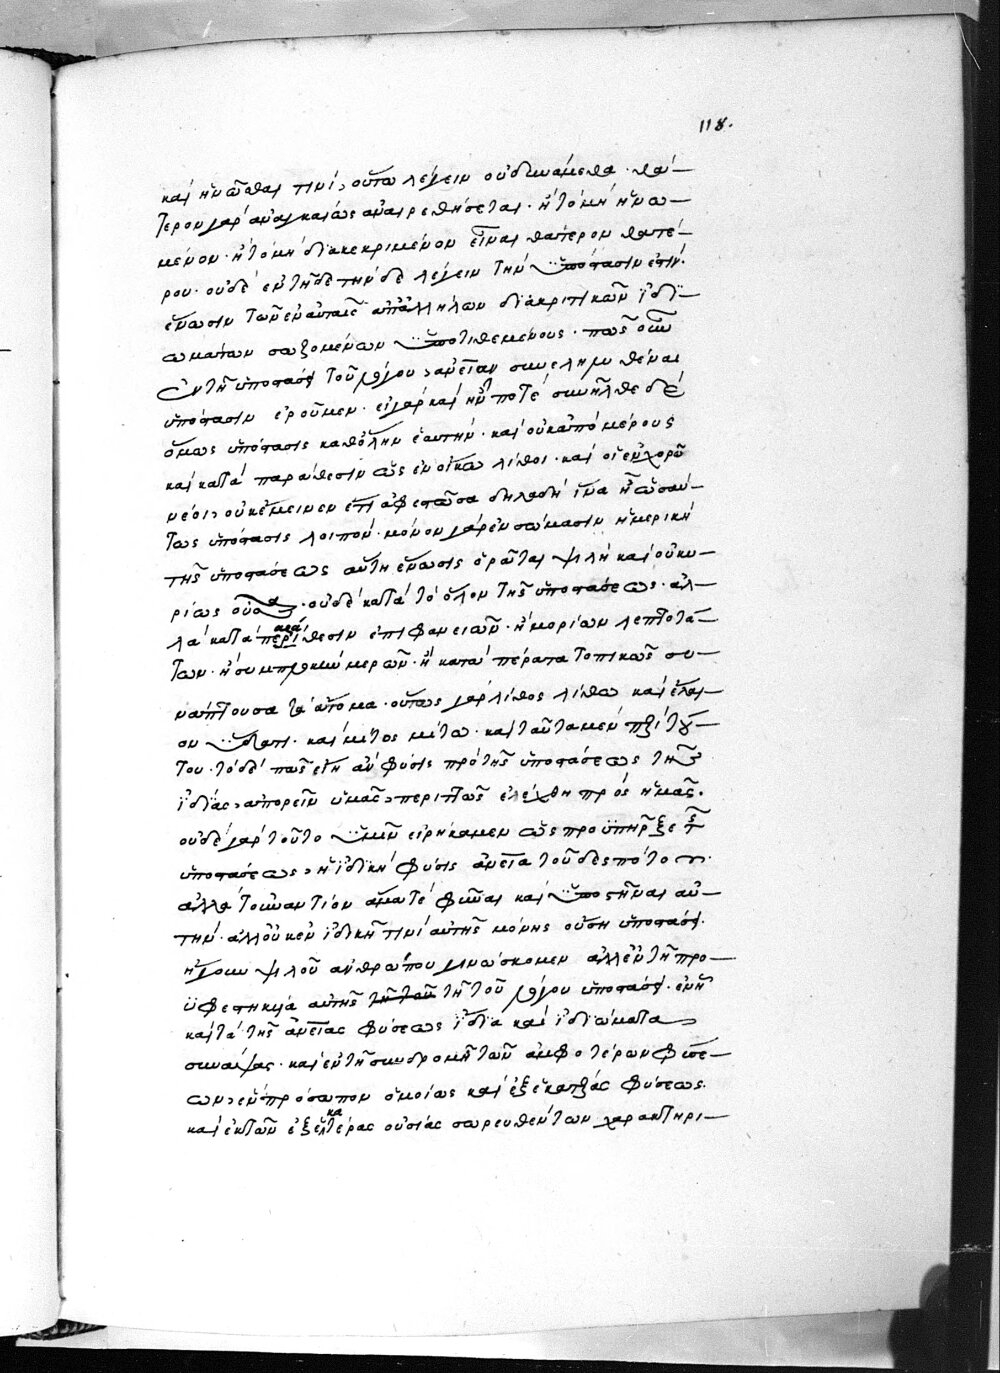 118.
καὶ ἡνῶσθαι τινὶ, οὕτω λέγειν οὐ δυνάμεθα· θά-
τερον γὰρ ἀναγκαίως ἀναιρεθήσεται· ἢ τὸ μὴ ἡνω-
μένον· ἢ τὸ μὴ διακεκριμένον εἶναι θάτερον θατέ-
ρου· οὐδὲ ἐν τῆδε τήνδε λέγειν τὴν ὑπόστασιν ἐστίν·
ἕνωσιν τῶν ἐν αὐταῖς ἀπ' ἀλλήλων διακριτικῶν ἰδι-
ωμάτων σωζομένων ὑποτιθεμένους· πῶς οὖν
ἐν τῆ ὑποστάσει τοῦ λόγου, ἀνείαν συνειλημμέναι
ὑπόστασιν ἐροῦμεν· εἰ γὰρ καὶ ἦν ποτὲ συνῆλθε δὲ
ὅμως ὑπόστασις καθ' ὅλην ἑαυτὴν· καὶ οὐκ ἀπὸ μέρους
καὶ κατὰ παράθεσιν ὡς ἐν οἴκω λίθοι· καὶ οἱ ἐν χορῶ
νέοι, οὐκ ἔμεινεν ἐπ' ἀφεστῶσα δηλαδὴ ἵνα ἦ ὡσαύ-
τως ὑπόστασις λοιπόν· μόνον γὰρ ἐν σώμασιν ἡ μερικὴ
τῆς ὑποστάσεως αὕτη ἕνωσις ὁρᾶται ψιλὴ καὶ οὐ κυ-
ρίως οὖσα· οὐδὲ κατὰ τὸ ὅλον τῆς ὑποστάσεως· ἀλ-
λὰ κατὰ παράθεσιν ἐπιφανειῶν· ἢ μορίων λεπτοτά-
των· ἢ συμπλοκὴν μερῶν· ἢ κατὰ πέρατα τοπικῶς συ-
νάπτουσα τὰ ἄτομα· οὕτως γὰρ λίθος λίθω καὶ ἔλαι-
ον ὕδατι· καὶ μίτος μίτω· καὶ ταῦτα μὲν περὶ τού-
του· τὸ δὲ πῶς εἴη ἂν φύσις πρὸ τῆς ὑποστάσεως τῆς
ἰδίας, ἀπορεῖν ὑμᾶς, περιττῶς ἐλέχθη πρὸς ἡμᾶς.
οὐδὲ γὰρ τοῦτο ὑμῖν εἰρήκαμεν ὡς προϋπῆρξε τῆς
ὑποστάσεως, ἡ ἰδικὴ φύσις ἀνεία τοῦ δεσπότου·
ἀλλὰ τοὐναντίον ἅμα τὲ φῦναι καὶ ὑποστῆναι αὐ-
τήν· ἀλλ' οὐκ ἐν ἰδικῆ τινὶ αὐτῆς μόνης οὔση ὑποστάσει·
ἤγουν ψιλοῦ ἀνθρώπου γινώσκομεν ἀλλ' ἐν τῆ προ-
ϋφεστηκυία αὐτῆς τῆ τοῦ λόγου ὑποστάσει· ἐν ἧ
καὶ τὰ τῆς ἀνείας φύσεως ἴδια καὶ ἰδιώματα
συνάψας· καὶ ἐν τῆ συνδρομῆ τῶν ἀμφοτέρων φύσε-
ων, ἓν πρόσωπον ὁμοίως καὶ ἐξ ἑκατέρας φύσεως
καὶ ἐκ τῶν ἐξ ἑκατέρας οὐσίας σωρευθέντων χαρακτηρι-